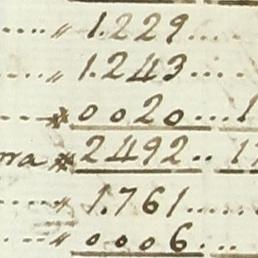 .... " 1.229....
.... " 1.243....
... * 0020....1
rra * 2492.. 17
.... " 1.761.....
... " 0006....